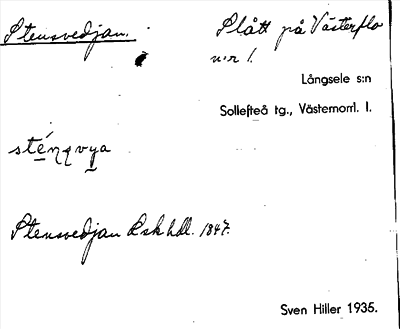 Stensvedjan.
Slått på Västerflo
n:r 1.
Långsele s:n
Sollefteå tg., Västernorrl. l.
Stensvedjan Lskhdl. 1847.
Sven Hiller 1935.